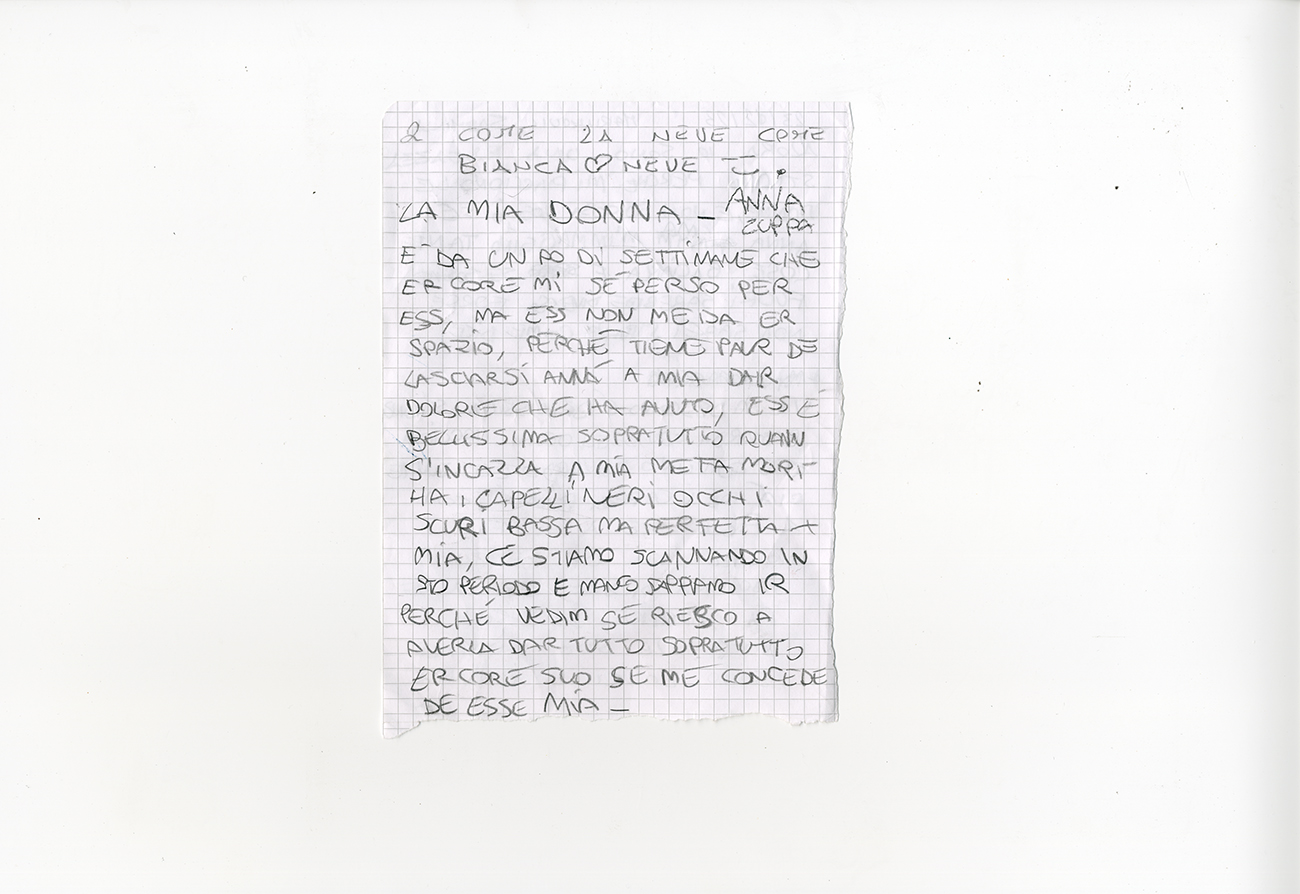 2 COME LA NEVE COME
BIANCA ♡ NEVE
LA MIA DONNA – ANNA
ZUPPA
E' DA UN PO DI SETTIMANE CHE
ER CORE MI SÉ PERSO PER
ESS, MA ESS NON ME DA ER
SPAZIO, PERCHÉ TIENE PAUR DE
LASCIARSI ANNÁ A MIA DAR
DOLORE CHE HA AVUTO, ESS É
BELLISSIMA SOPRATUTTO QUANN
S'INCAZZA A MIA META MORI-
HA I CAPELLI NERI OCCHI
SCURI BASSA MA PERFETTA X
MIA, CÉ STIAMO SCANNANDO IN
STO PERIODO E MANCO SAPPIAMO IR
PERCHÉ VEDIM SE RIESCO A
AVERLA DAR TUTTO SOPRATUTTO
ER CORE SUO SE ME CONCEDE
DE ESSE MIA –